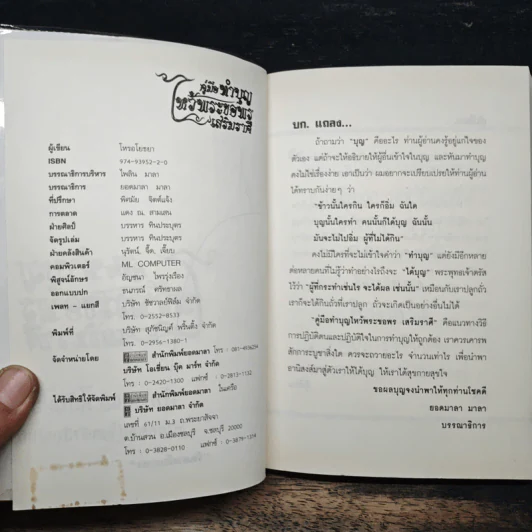 คู่มือทำบุญ
ไหว้พระขอพร
เสริมราศี
ผู้เขียน โหรอโยธยา
ISBN 974-93952-2-0
บรรณาธิการบริหาร ไพลิน มาลา
บรรณาธิการ ยอดมาลา มาลา
ที่ปรึกษา พิศมัย จิตต์แจ้ง
การตลาด แดง ณ. สามเสน
ฝ่ายศิลป์ บรรหาร ทินประบุตร
จัดรูปเล่ม บรรหาร ทินประบุตร
ฝ่ายคลังสินค้า นุรัตน์, จี๊ด, เจี๊ยบ
คอมพิวเตอร์ ML COMPUTER
พิสูจน์อักษร อัญชนา ไพรรุ่งเรือง
ออกแบบปก ธนภรณ์ ศรัทธาผล
เพลท - แยกสี บริษัท ชัชวาลย์ฟิล์ม จำกัด
โทร: 0-2552-8533
พิมพ์ที่ บริษัท สุภัชนิญค์ พริ้นติ้ง จำกัด
โทร : 0-2956-1380-1
จัดจำหน่ายโดย สำนักพิมพ์ยอดมาลา โทร : 081-4956254
บริษัท โอเชี่ยน บุ๊ค มาร์ท จำกัด
โทร : 0-2420-1300 แฟกซ์ : 0-2813-1132
ได้รับสิทธิให้จัดพิมพ์ สำนักพิมพ์ยอดมาลา ในเครือ
บริษัท ยอดมาลา จำกัด
เลขที่ 61/11 ม.3 ถ.พระยาสัจจา
ต.บ้านสวน อ.เมืองชลบุรี จ.ชลบุรี 20000
โทร : 0-3828-0110 แฟกซ์ : 0-3879-1314
บก. แถลง...
ถ้าถามว่า "บุญ" คืออะไร ท่านผู้อ่านคงรู้อยู่แก่ใจของ
ตัวเอง แต่ถ้าจะให้อธิบายให้ผู้อื่นเข้าใจในบุญ และหันมาทำบุญ
คงไม่ใช่เรื่องง่าย เอาเป็นว่า ผมอยากจะเปรียบเปรยให้ท่านผู้อ่าน
ได้ทราบกันง่ายๆ ว่า
"ข้าวนั้นใครกิน ใครก็อิ่ม ฉันใด
บุญนั้นใครทำ คนนั้นก็ได้บุญ ฉันนั้น
มันจะไม่ไปอิ่ม ผู้ที่ไม่ได้กิน"
คงไม่มีใครที่จะไม่เข้าใจคำว่า "ทำบุญ" แต่ยังมีอีกหลาย
ต่อหลายคนที่ไม่รู้ว่าทำอย่างไรถึงจะ "ได้บุญ" พระพุทธเจ้าตรัส
ไว้ว่า "ผู้ที่กระทำเช่นไร จะได้ผล เช่นนั้น" เหมือนกับเราปลูกถั่ว
เราก็จะได้กินถั่วที่เราปลูก ถั่วจะเกิดเป็นอย่างอื่นไม่ได้
"คู่มือทำบุญไหว้พระขอพร เสริมราศี" คือแนวทางวิธี
การปฏิบัติตนและปฏิบัติใจในการทำบุญให้ถูกต้อง เราควรเคารพ
สักการะบูชาสิ่งใด ควรจะถวายอะไร จำนวนเท่าไร เพื่อนำพา
อานิสงส์มาสู่ตัวเราให้ได้บุญ ให้เราได้สุขกายสุขใจ
ขอผลบุญจงนำพาให้ทุกท่านโชคดี
ยอดมาลา มาลา
บรรณาธิการ